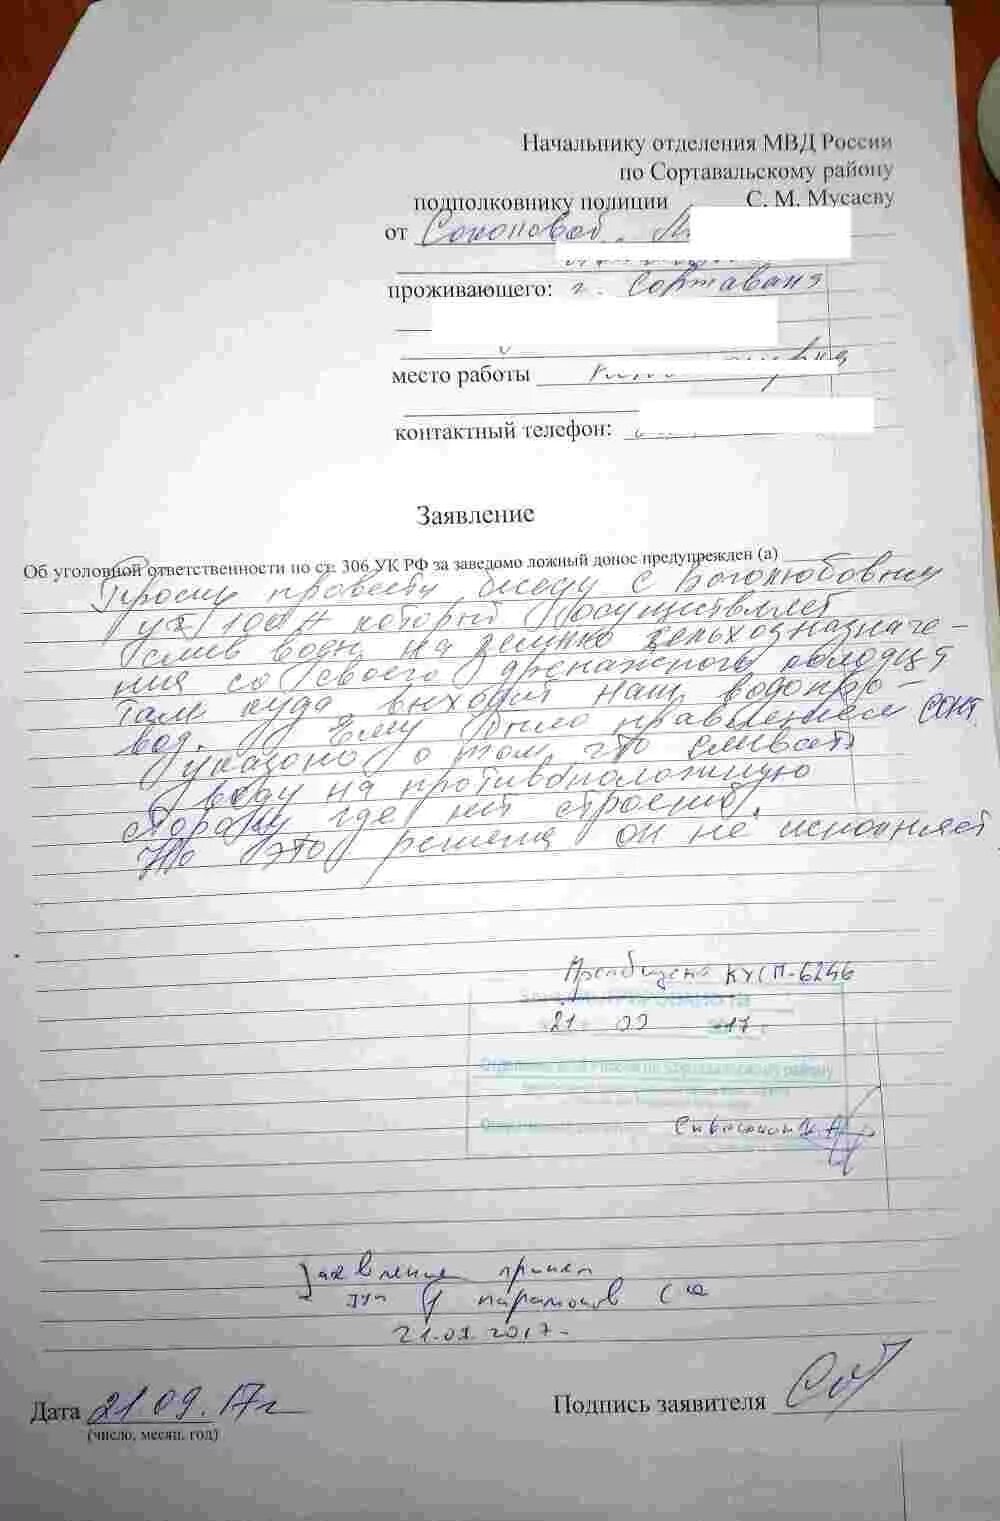 Начальнику отделения МВД России
по Сортавальскому району
подполковнику полиции С. М. Мусаеву
от Соколовой М
проживающего: г. Сортавала
место работы
контактный телефон:
Заявление
Об уголовной ответственности по ст. 306 УК РФ за заведомо ложный донос предупрежден (а)
Прошу провести беседу с Боголюбовым
уч 100А который осуществляет
слив воды на землю сельхозназначе-
ния со своего дренажного колодца
там куда выходит наш водопро-
вод. Ему было правлением СОНТ
указано о том, что сливать
воду на противоположную
сторону, где нет строений.
Но это решение он не исполняет
КУСП-6246
21 09 17
Заявление принял
Парамонов С
21.09.2017-
Дата 21.09.17г
(число, месяц, год)
Подпись заявителя